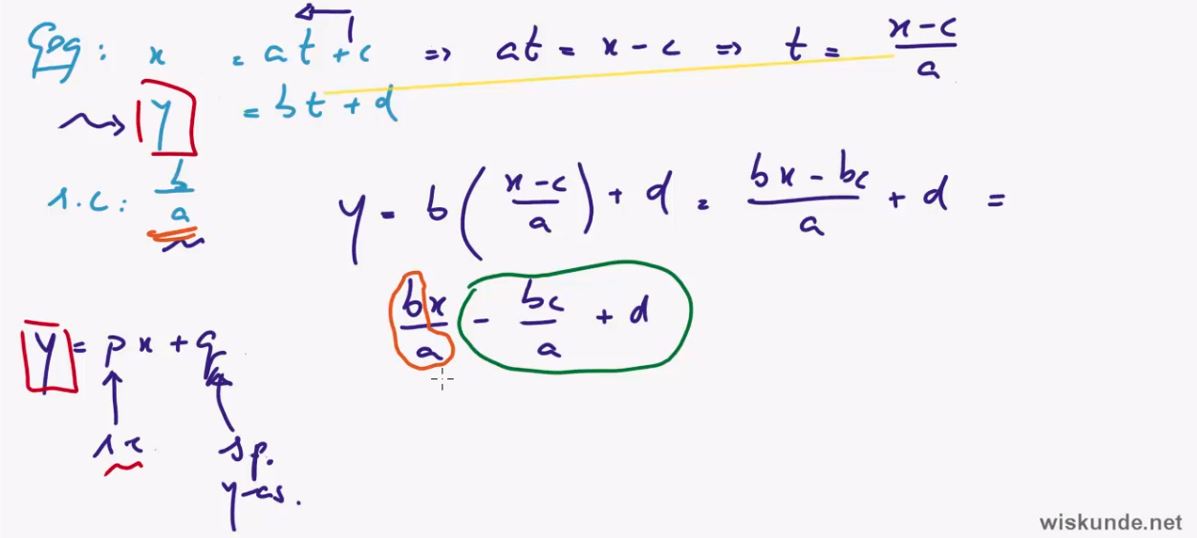 Geg: x = at + c => at = x - c => t = (x - c)/a
y = bt + d
r.c: b/a
y = b((x - c)/a) + d = (bx - bc)/a + d =
bx/a - bc/a + d
y = px + q
rc sp.
y-as.
wiskunde.net